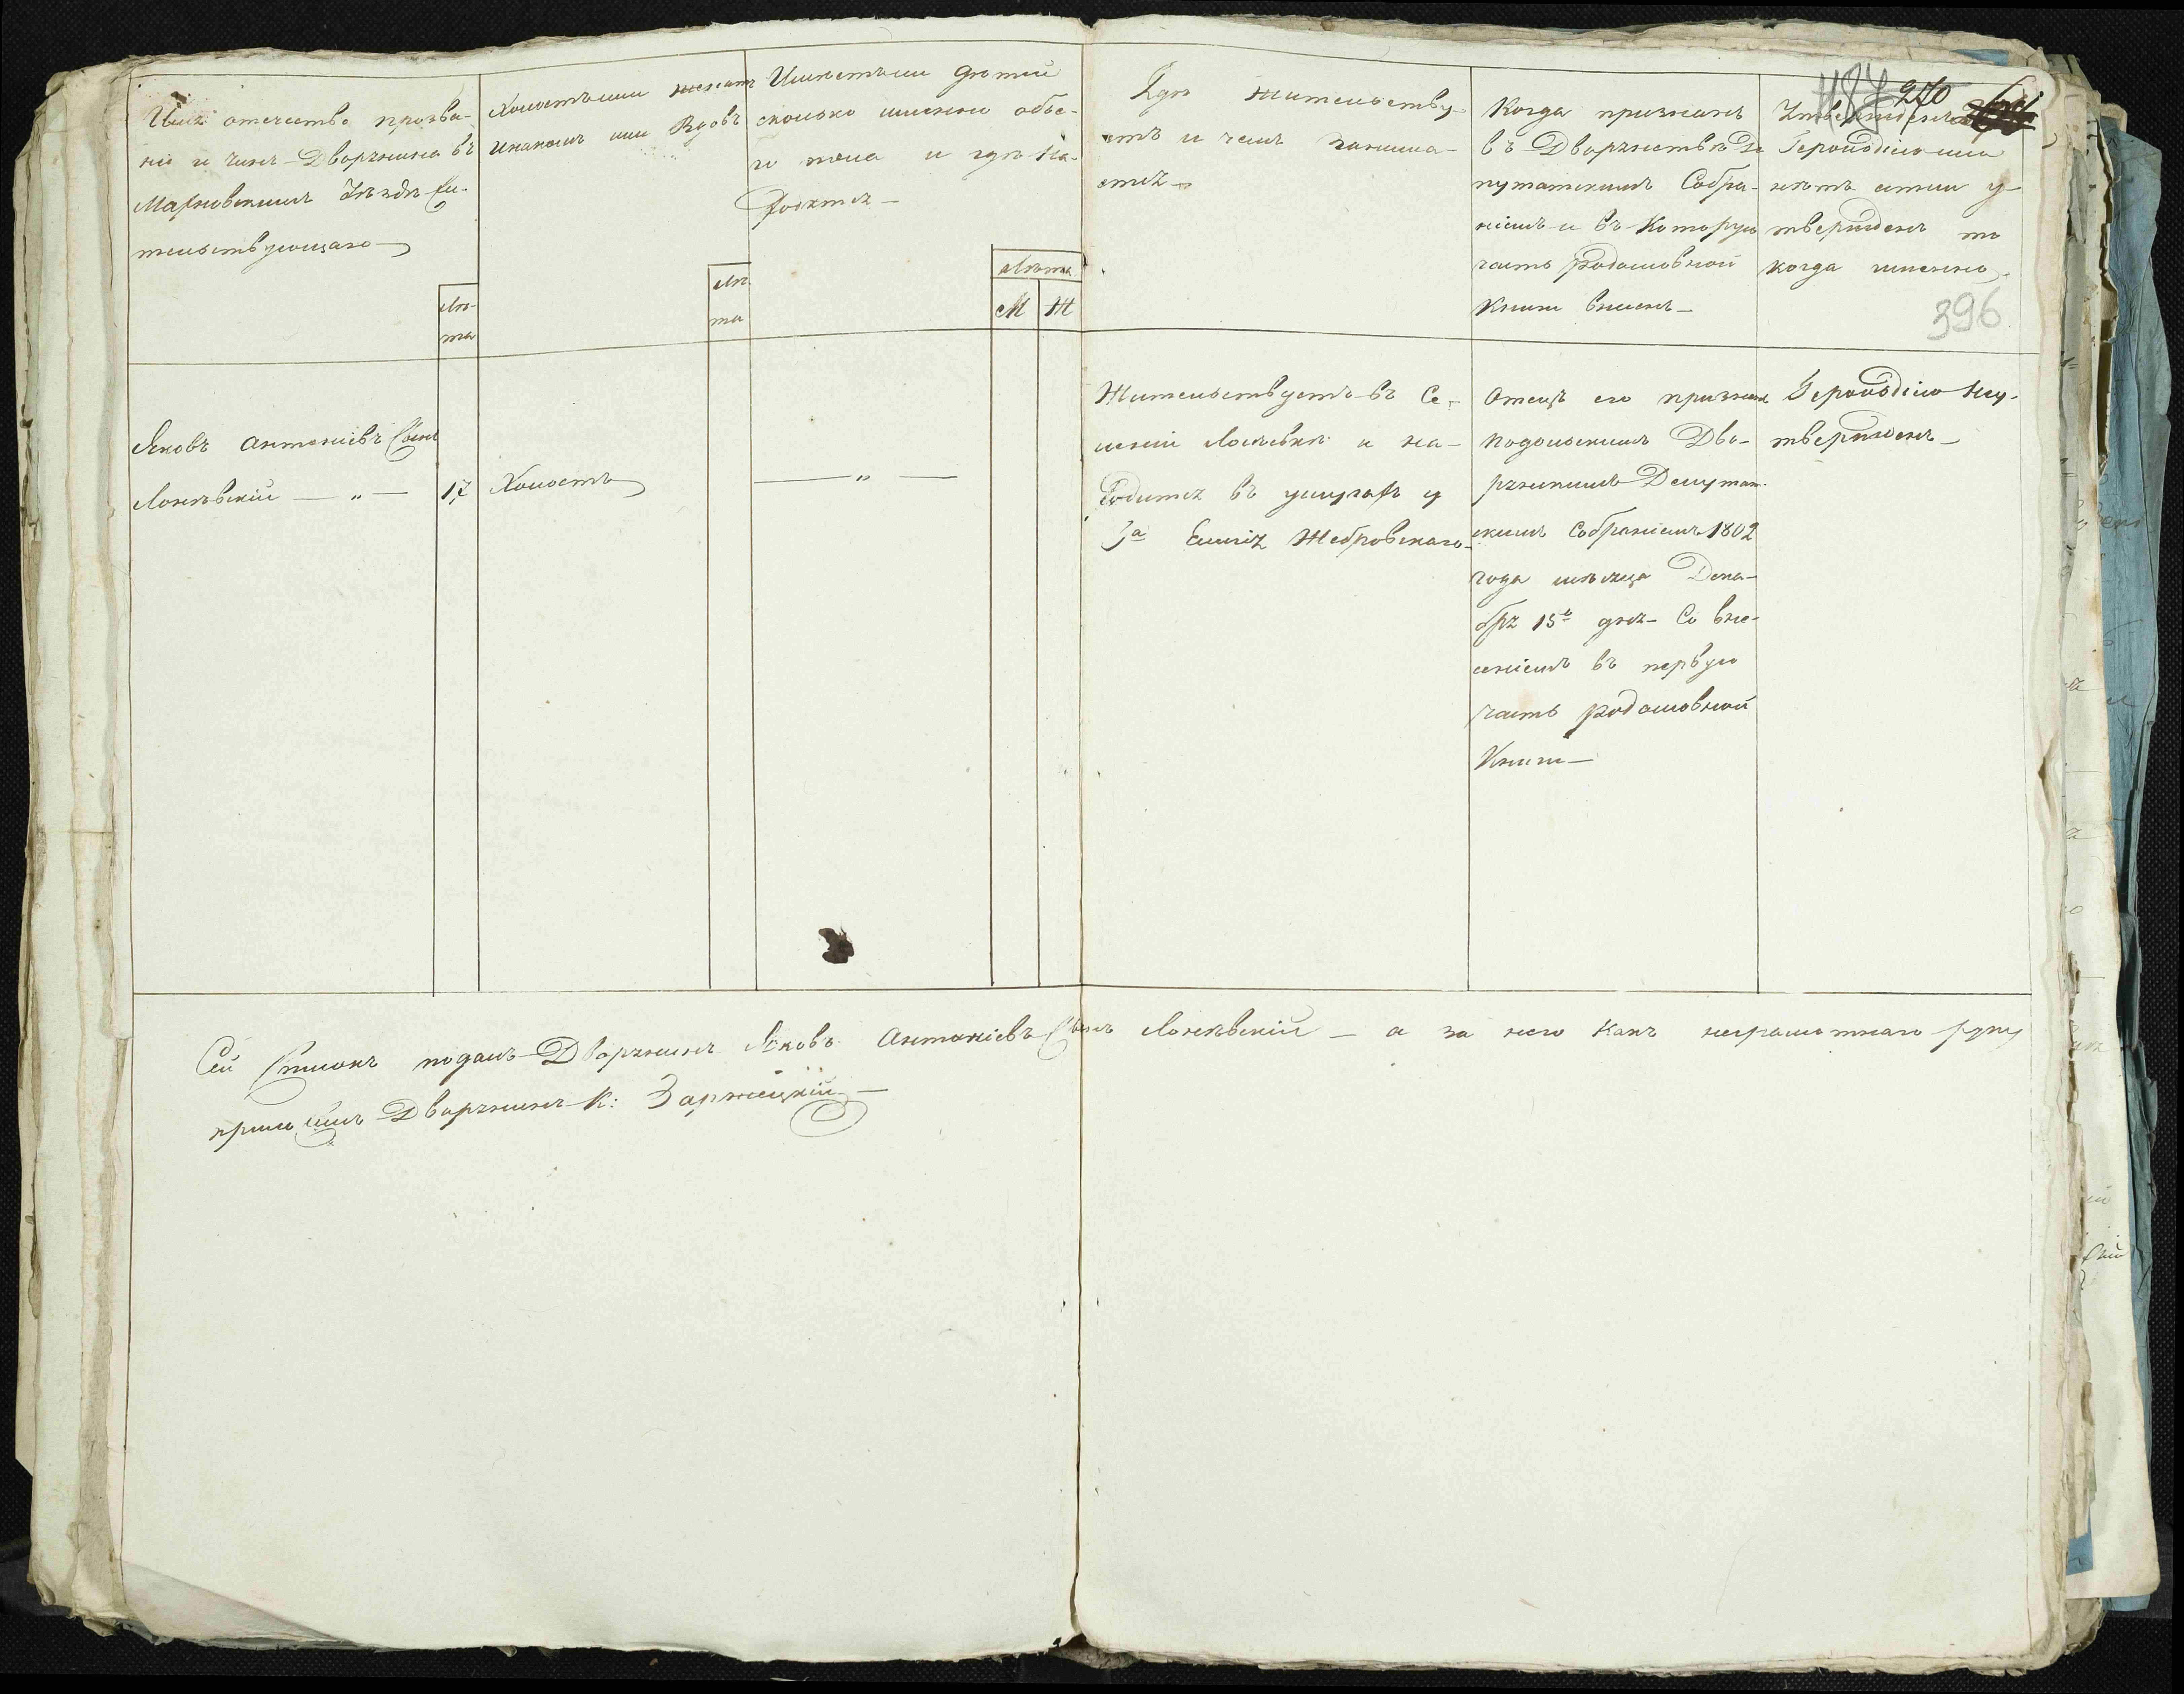 487 270
396
Имя отечество прозва-
ніе и чинъ Дворянина въ
Махновскомъ Уѣздѣ жи-
тельствующаго
лѣ-
та
Холостъ или женатъ
и на комъ или Вдовъ
лѣ
та
Имѣетъ ли дѣтей
сколько именно обое-
го пола и гдѣ на-
ходятся
лѣта
М Ж
Гдѣ жительству-
етъ и чемъ занима-
ется
Когда признанъ
въ Дворянствѣ Де
путатскимъ Собра-
ніемъ и въ Которую
часть родословной
Книги внисенъ
Утвержденъ
Герольдіею или
нѣтъ если у-
твержденъ то
когда именно
Яковъ Антоніевъ Сынъ
Лонѣвскій — „ —
17
Холостъ
— „ —
Жительствуетъ въ Се-
леніи и на-
ходится въ услугахъ у
Жебровскаго
Отецъ его признанъ
Подольскимъ Дво-
рянскимъ Депутат-
скимъ Собраніемъ 1802
года мѣсяца Дека-
бря 15го дня Со вне-
сеніемъ въ первую
часть родословной
Книги
Герольдіею Неу-
твержденъ
Сей Списокъ подалъ Дворянинъ Яковъ Антоніевъ Сынъ Лонѣвскій — а за него Какъ неграмотнаго руку
приложилъ Дворянинъ К: Заржецкій